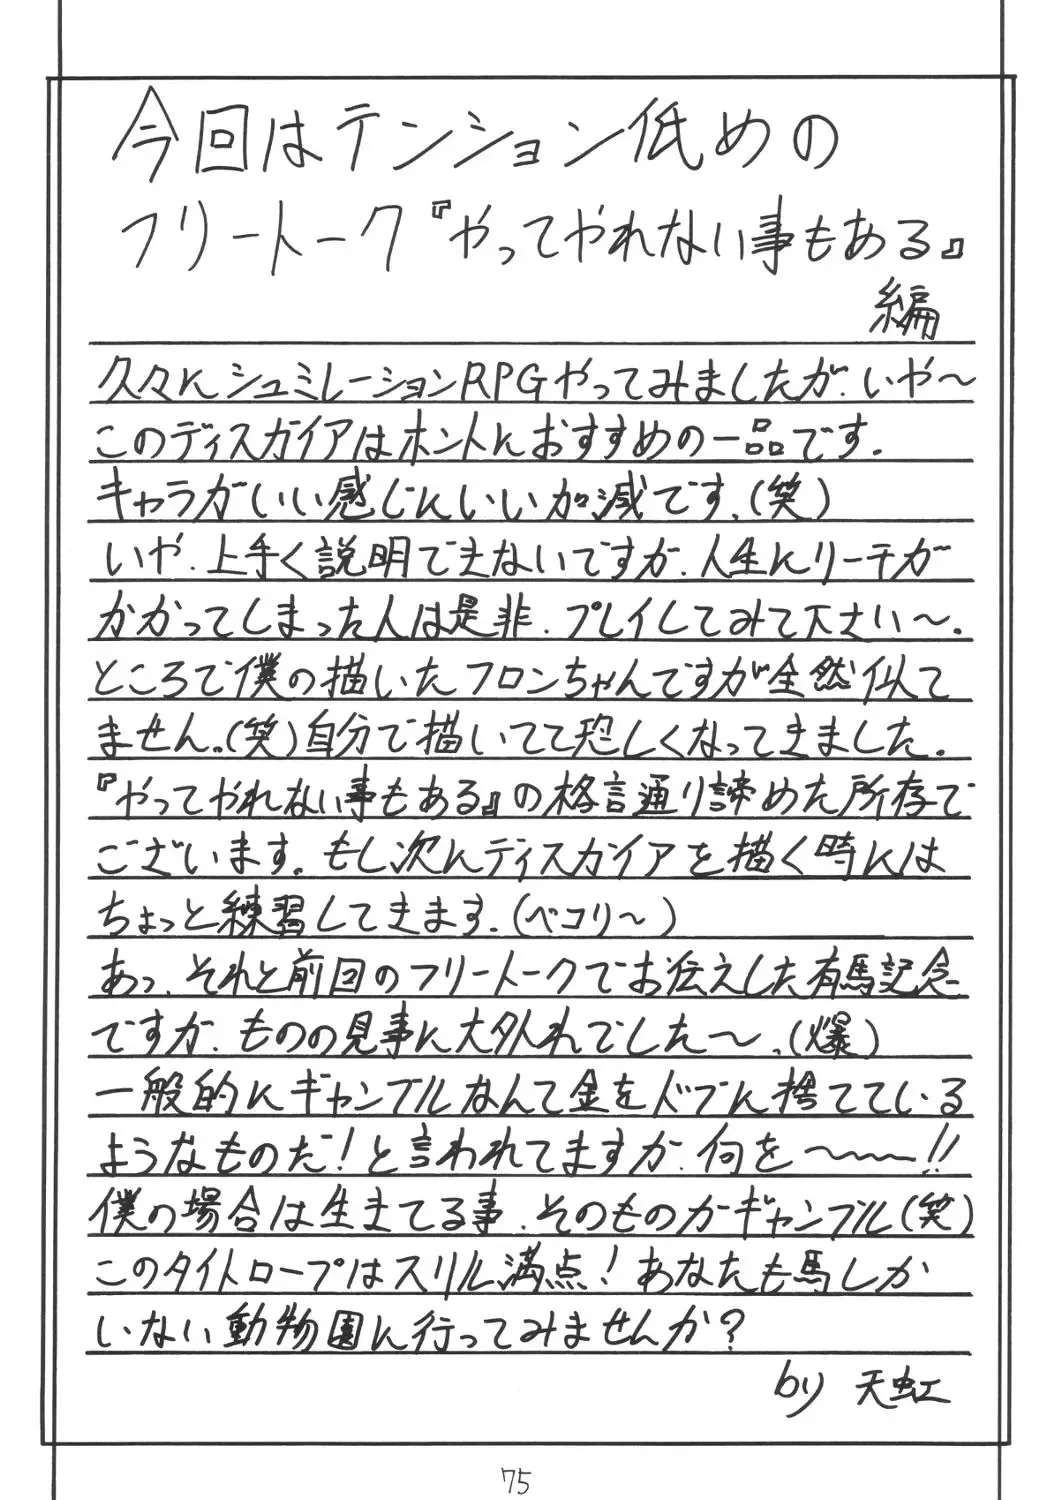 今回はテンション低めの
フリートーク『やってやれない事もある』
編
久々にシュミレーションRPGやってみましたが、いや〜
このディスガイアはホントにおすすめの一品です。
キャラがいい感じにいい加減です。(笑)
いや、上手く説明できないですが、人生にリーチが
かかってしまった人は是非、プレイしてみて下さい〜。
ところで僕の描いたフロンちゃんですが全然似て
ません。(笑)自分で描いてて恐しくなってきました。
『やってやれない事もある』の格言通り諦めた所存で
ございます。もし次にディスガイアを描く時には
ちょっと練習してきます。(ペコリ〜)
あっ、それと前回のフリートークでお伝えした有馬記念
ですが、ものの見事に大外れでした〜、(爆)
一般的にギャンブルなんて金をドブに捨てている
ようなものだ!と言われてますが、何を〜〜〜!!
僕の場合は生きてる事、そのものがギャンブル(笑)
このタイトロープはスリル満点!あなたも馬しか
いない動物園に行ってみませんか?
by 天虹
75